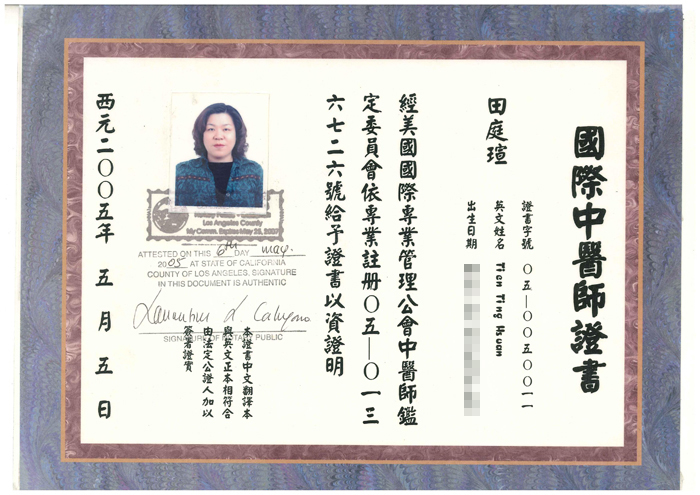 國際中醫師證書
證書字號 〇五—〇〇五〇〇一一
英文姓名 Tien Ting Hsuan
出生日期
田庭瑄
經美國國際專業管理公會中醫師鑑
定委員會依專業註册〇五—〇一三
六七二六號給予證書以資證明
Notary Public - California
Los Angeles County
My Comm. Expires May 25, 2007
ATTESTED ON THIS 6th DAY may.
2005 AT STATE OF CALIFORNIA
COUNTY OF LOS ANGELES. SIGNATURE
IN THIS DOCUMENT IS AUTHENTIC
SIGNATURE OF NOTARY PUBLIC
本證書中文翻譯本
與英文正本相符合
由法定公證人加以
簽署證實
西元二〇〇五年 五月五日